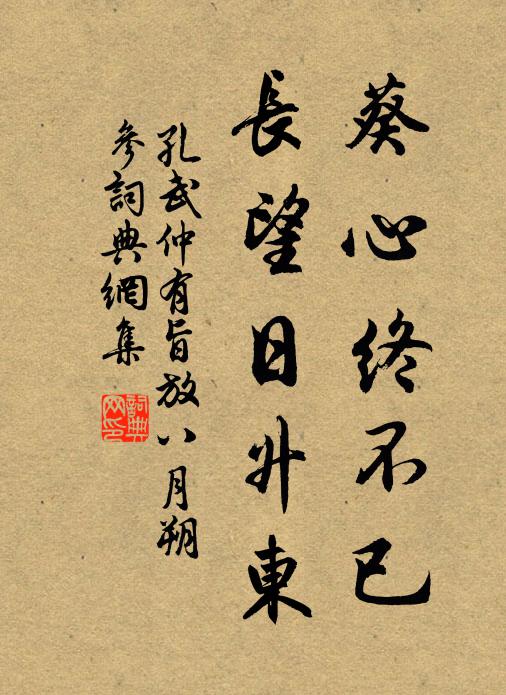 葵心終不已
長望日升東
孔武仲有旨放八月朔
參詞典網集
詞典
网印